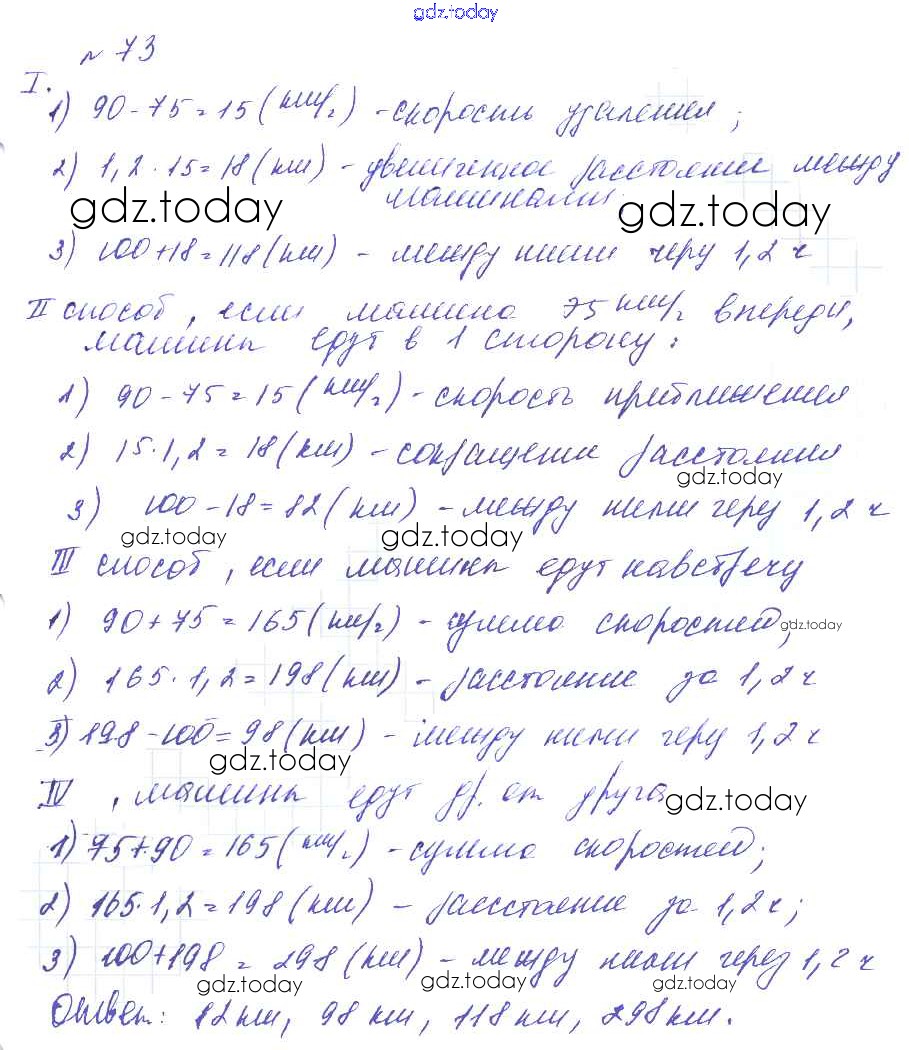 gdz.today
№ 73
I.
1) 90 - 75 = 15 (км/ч) - скорость удаления;
2) 1,2 · 15 = 18 (км) - увеличенное расстояние между
машинами
gdz.today gdz.today
3) 100 + 18 = 118 (км) - между ними через 1,2 ч
II способ, если машина 75 км/ч впереди,
машины едут в 1 сторону:
1) 90 - 75 = 15 (км/ч) - скорость приближения
2) 15 · 1,2 = 18 (км) - сокращение расстояния
gdz.today
3) 100 - 18 = 82 (км) - между ними через 1,2 ч
gdz.today gdz.today
III способ, если машины едут навстречу
1) 90 + 75 = 165 (км/ч) - сумма скоростей;
gdz.today
2) 165 · 1,2 = 198 (км) - расстояние за 1,2 ч
3) 198 - 100 = 98 (км) - между ними через 1,2 ч
gdz.today
IV , машины едут др. от друга
gdz.today
1) 75 + 90 = 165 (км/ч) - сумма скоростей;
2) 165 · 1,2 = 198 (км) - расстояние за 1,2 ч;
3) 100 + 198 = 298 (км) - между ними через 1,2 ч
gdz.today gdz.today gdz.today
Ответ: 12 км, 98 км, 118 км, 298 км.